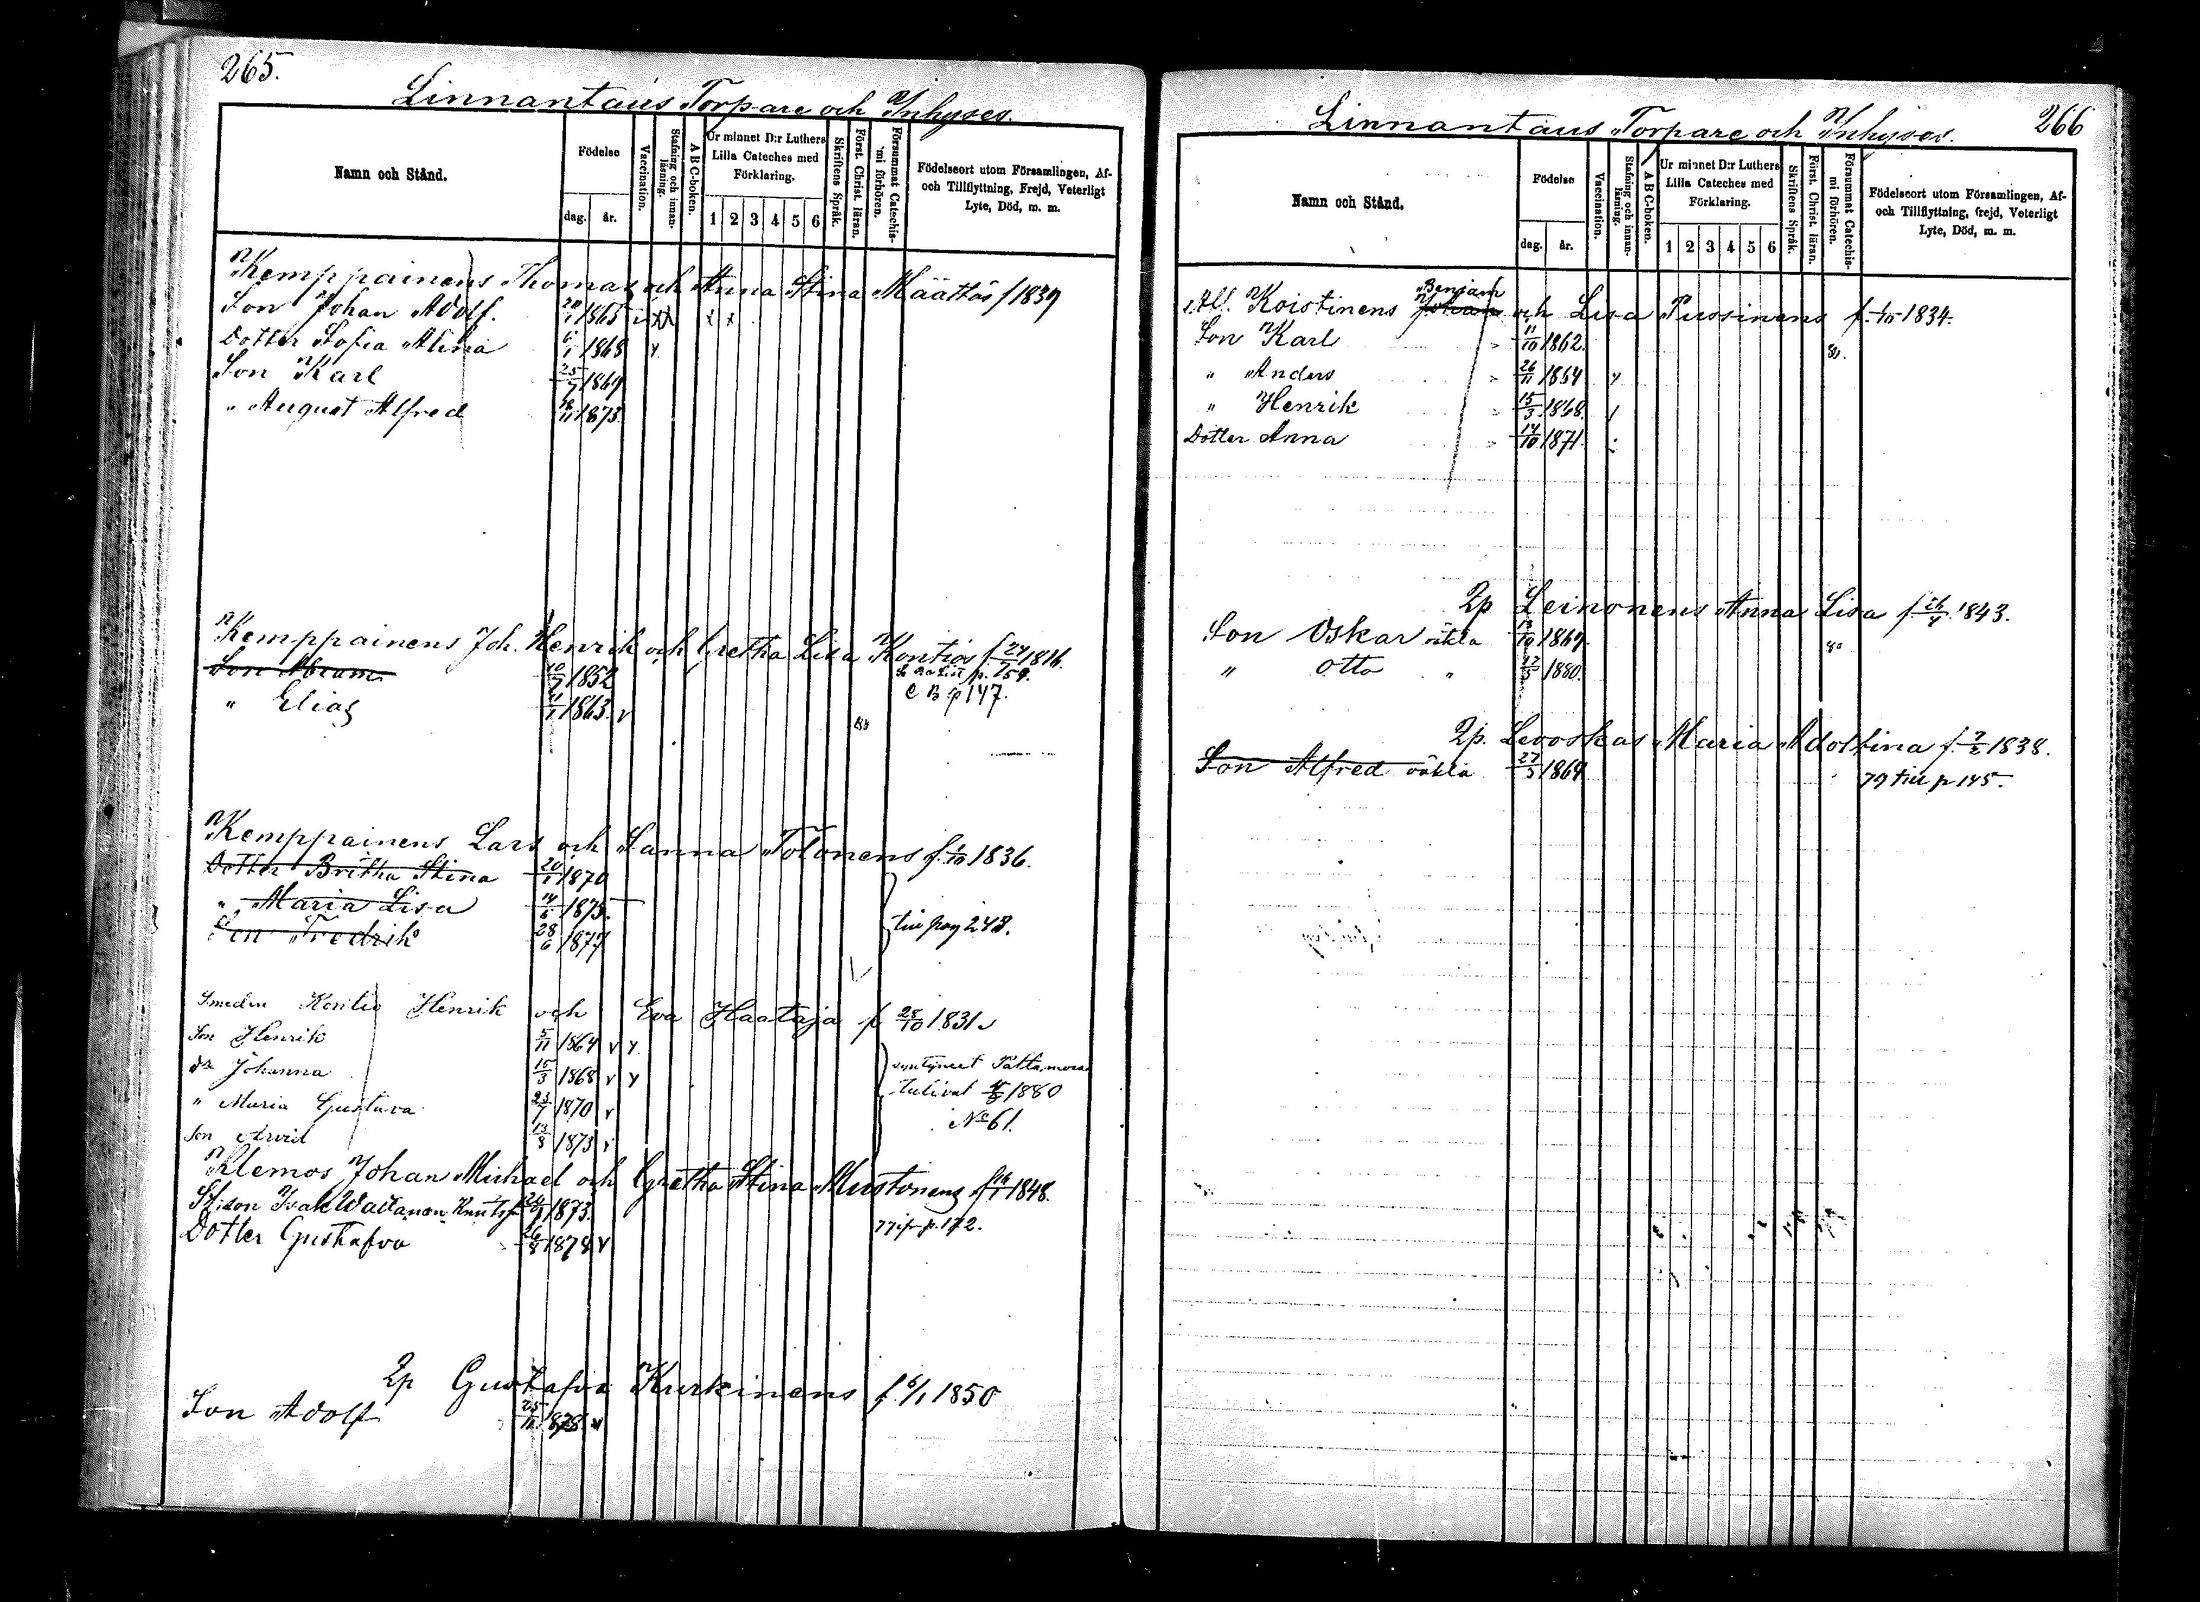 265.
Linnantaus Torpare och Inhyses.
Namn och Stånd.
Födelse
dag. år.
Vaccination.
Stafning och innanläsning.
A B C-boken.
Ur minnet D:r Luthers Lilla Cateches med Förklaring.
1 2 3 4 5 6
Skriftens Språk.
Först. Christ. läran.
Försummat Catechismi förhören.
Födelseort utom Församlingen, Af- och Tillflyttning, Frejd, Veterligt Lyte, Död, m. m.
Kemppainens Thomas och Anna Stina Määttös f 1839
Son Johan Adolf. 20/1 1865
Dotter Sofia Alina 6/1 1868
Son Karl 25/7 1869
" August Alfred 1873.
Kemppainens Joh. Henrik och Gretha Lisa Kontios f. 1816.
Son Abram 10/7 1852 p. 259.
" Elias 1863. v C B p 147.
Kemppainens Lars och Sanna Tolonens f. 1/10 1836.
Dotter Britha Stina 20/1 1870
" Maria Lisa 14/6 1875.
Son Fredrik 28/6 1877 till pag 248.
Smeden Kontio Henrik och Eva Haataja f 28/10 1831
Son Henrik 5/11 1864 v v
dr Johanna 15/3 1868 v v syntyneet Paltamossa
" Maria Gustava 23/7 1870 v tulivat 1880
Son Arvid 13/8 1873 v No 61.
Klemos Johan Michael och Gretha Stina Mustonens f 1848.
St. son Isak Wäätänen Knutsf. 1873.
Dotter Gustafva 1878 v 77 ifr p. 172.
2p Gustafva Kurkinens f 6/1 1850
Son Adolf 1878
266
Linnantaus Torpare och Inhyses.
Namn och Stånd.
Födelse
dag. år.
Vaccination.
Stafning och innanläsning.
A B C-boken.
Ur minnet D:r Luthers Lilla Cateches med Förklaring.
1 2 3 4 5 6
Skriftens Språk.
Först. Christ. läran.
Försummat Catechismi förhören.
Födelseort utom Församlingen, Af- och Tillflyttning, frejd, Veterligt Lyte, Död, m. m.
Benjam
Koistinens Johan och Lisa Pussinens f. 1/10 1834.
Son Karl 11/10 1862. 80.
" Anders 26/11 1864 v
" Henrik 15/3 1868. v
Dotter Anna 14/10 1871.
2p Leinonens Anna Lisa f 1843.
Son Oskar oäkta 1869 80
" Otto " 1880.
2p. Levoskas Maria Adolfina f. 1838.
Son Alfred oäkta 27/3 1864 79 till p 145.